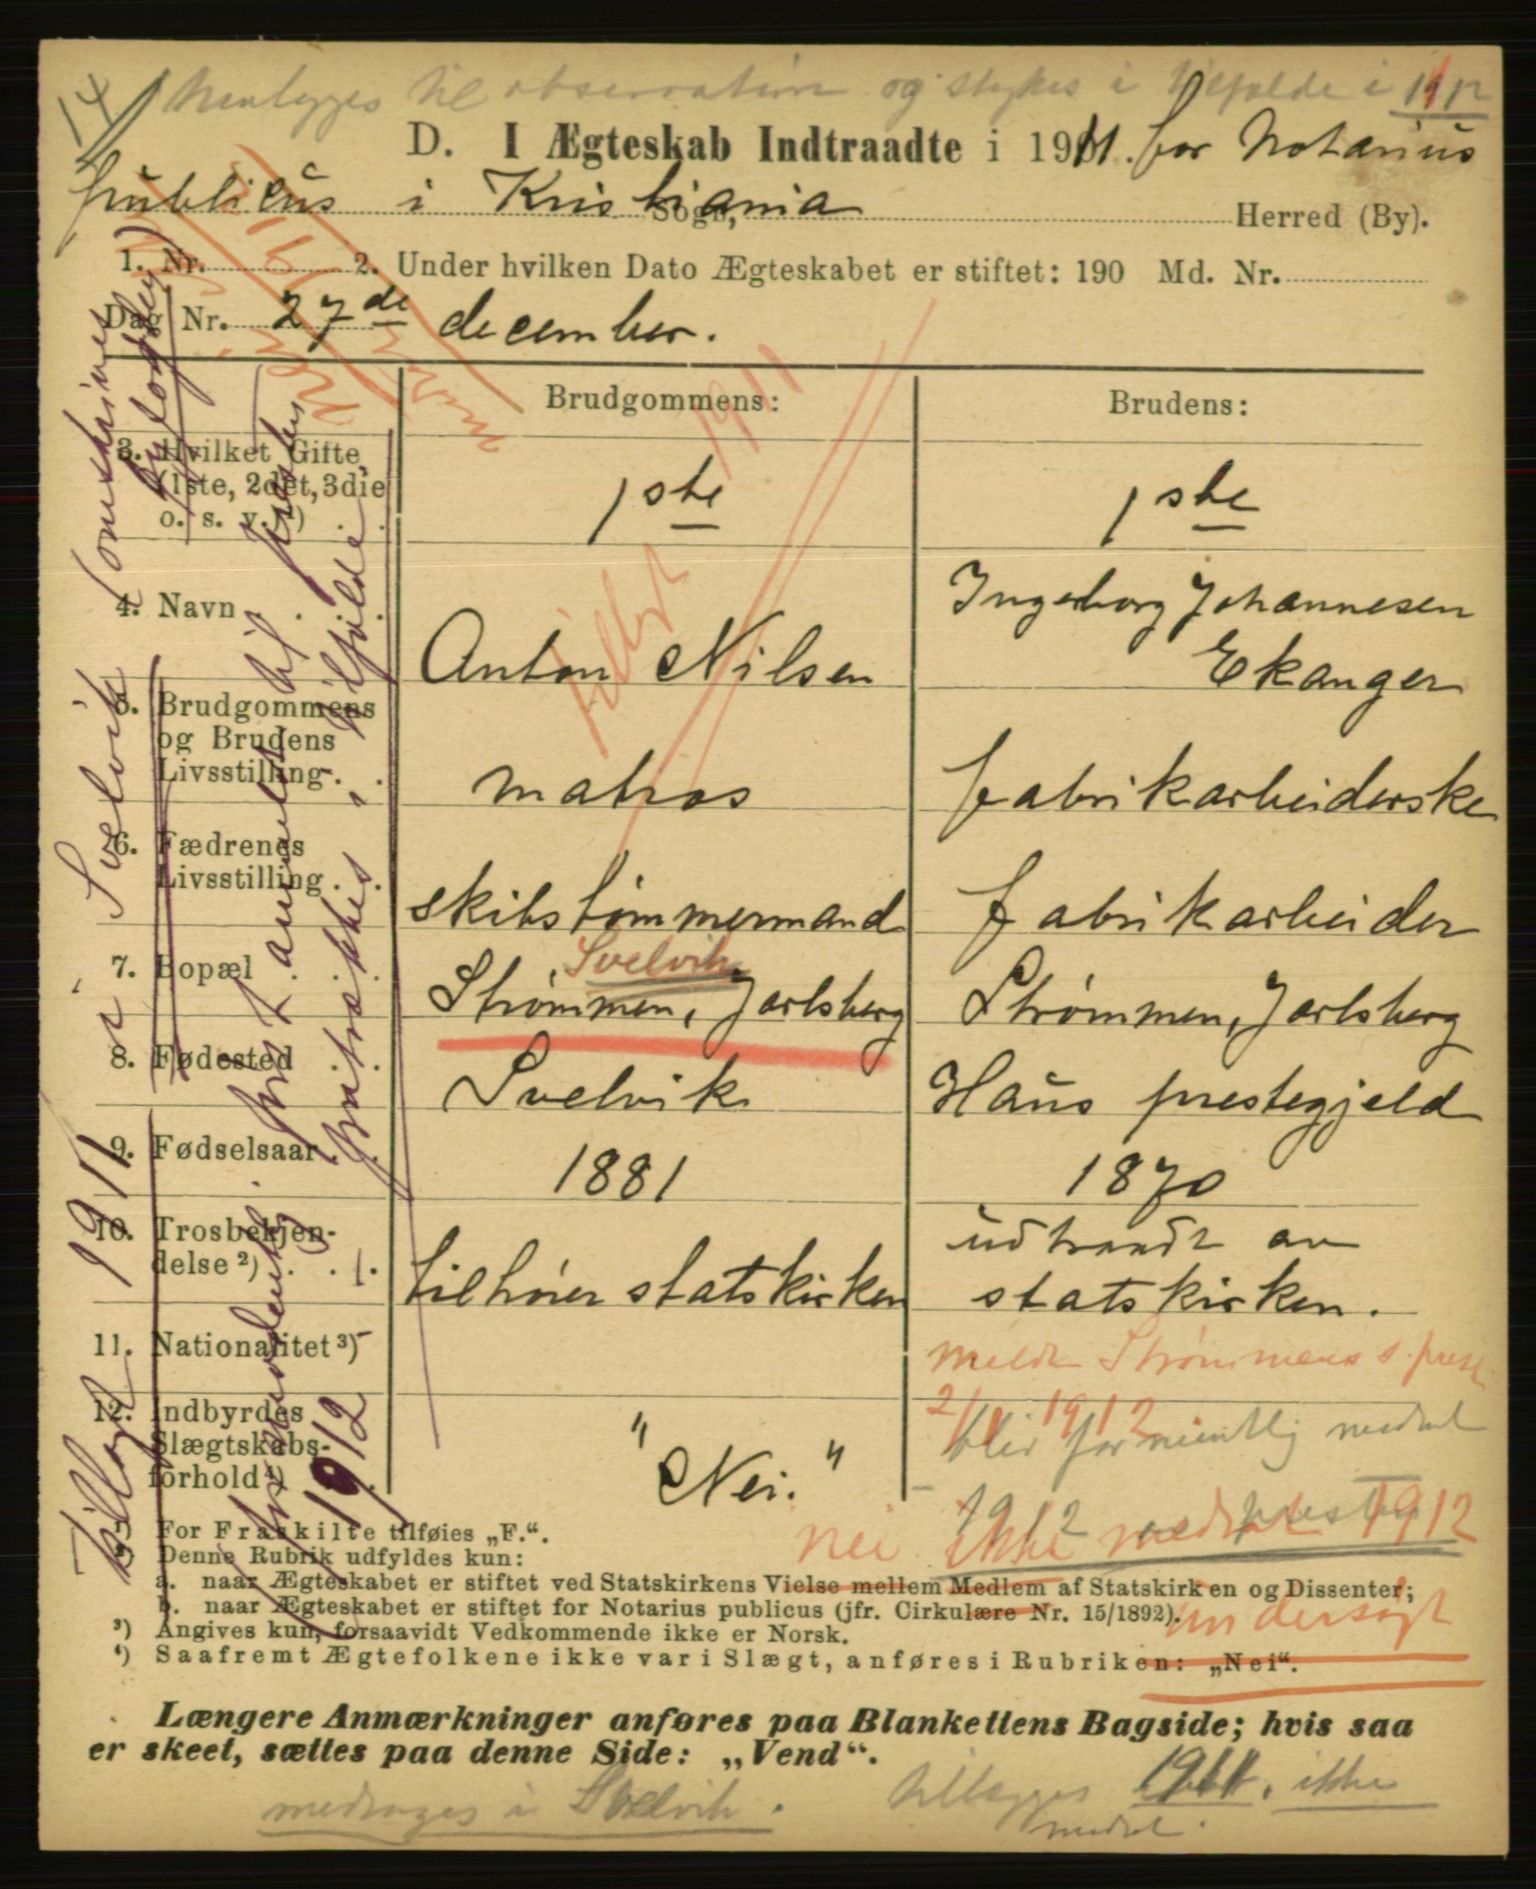 henlægges til observation og strykes i tilfælde i 1912
D. I Ægteskab Indtraadte i 1911. for Notarius
publicus i Kristiania Sogn, Herred (By).
1. Nr. 2. Under hvilken Dato Ægteskabet er stiftet: 190 Md. Nr.
Dag Nr. 27de december.
Brudgommens: Brudens:
3. Hvilket Gifte
(1ste, 2det, 3die
o. s. v. ¹) 1ste 1ste
4. Navn Anton Nilsen Ingeborg Johannesen
Ekanger
5. Brudgommens
og Brudens
Livsstilling. matros fabrikarbeiderske
6. Fædrenes
Livsstilling. skibstømmermand fabrikarbeider
Svelvik
7. Bopæl Strømmen, Jarlsberg Strømmen, Jarlsberg
8. Fødested Svelvik Haus prestegjeld
9. Fødselsaar. 1881 1870
10. Trosbekjen-
delse ²) tilhører statskirken udtraadt av
statskirken.
11. Nationalitet ³)
meldt Strømmens s. prest
2/1 1912
12. Indbyrdes
Slægtskabs-
forhold ⁴) "Nei."
blir formentlig medtat
1912
nei ikke medtat 1912
undersøgt
¹) For Fraskilte tilføies „F.“.
²) Denne Rubrik udfyldes kun:
a. naar Ægteskabet er stiftet ved Statskirkens Vielse mellem Medlem af Statskirken og Dissenter;
b. naar Ægteskabet er stiftet for Notarius publicus (jfr. Cirkulære Nr. 15/1892).
³) Angives kun, forsaavidt Vedkommende ikke er Norsk.
⁴) Saafremt Ægtefolkene ikke var i Slægt, anføres i Rubriken: „Nei“.
Længere Anmærkninger anføres paa Blankettens Bagside; hvis saa
er skeet, sættes paa denne Side: „Vend“.
medtages i Svelvik. tillægges 1911. ikke
medtat.
Tillagt 1911
i Svelvik
1912
Tillagt 1911